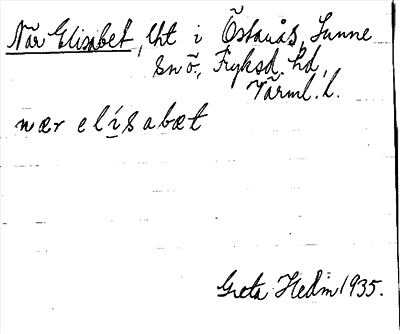 När Elisabet, lht i Östanås, Sunne
sn ö., Fryksd. hd,
Värml. l.
nær elísabæt
Greta Hedin 1935.